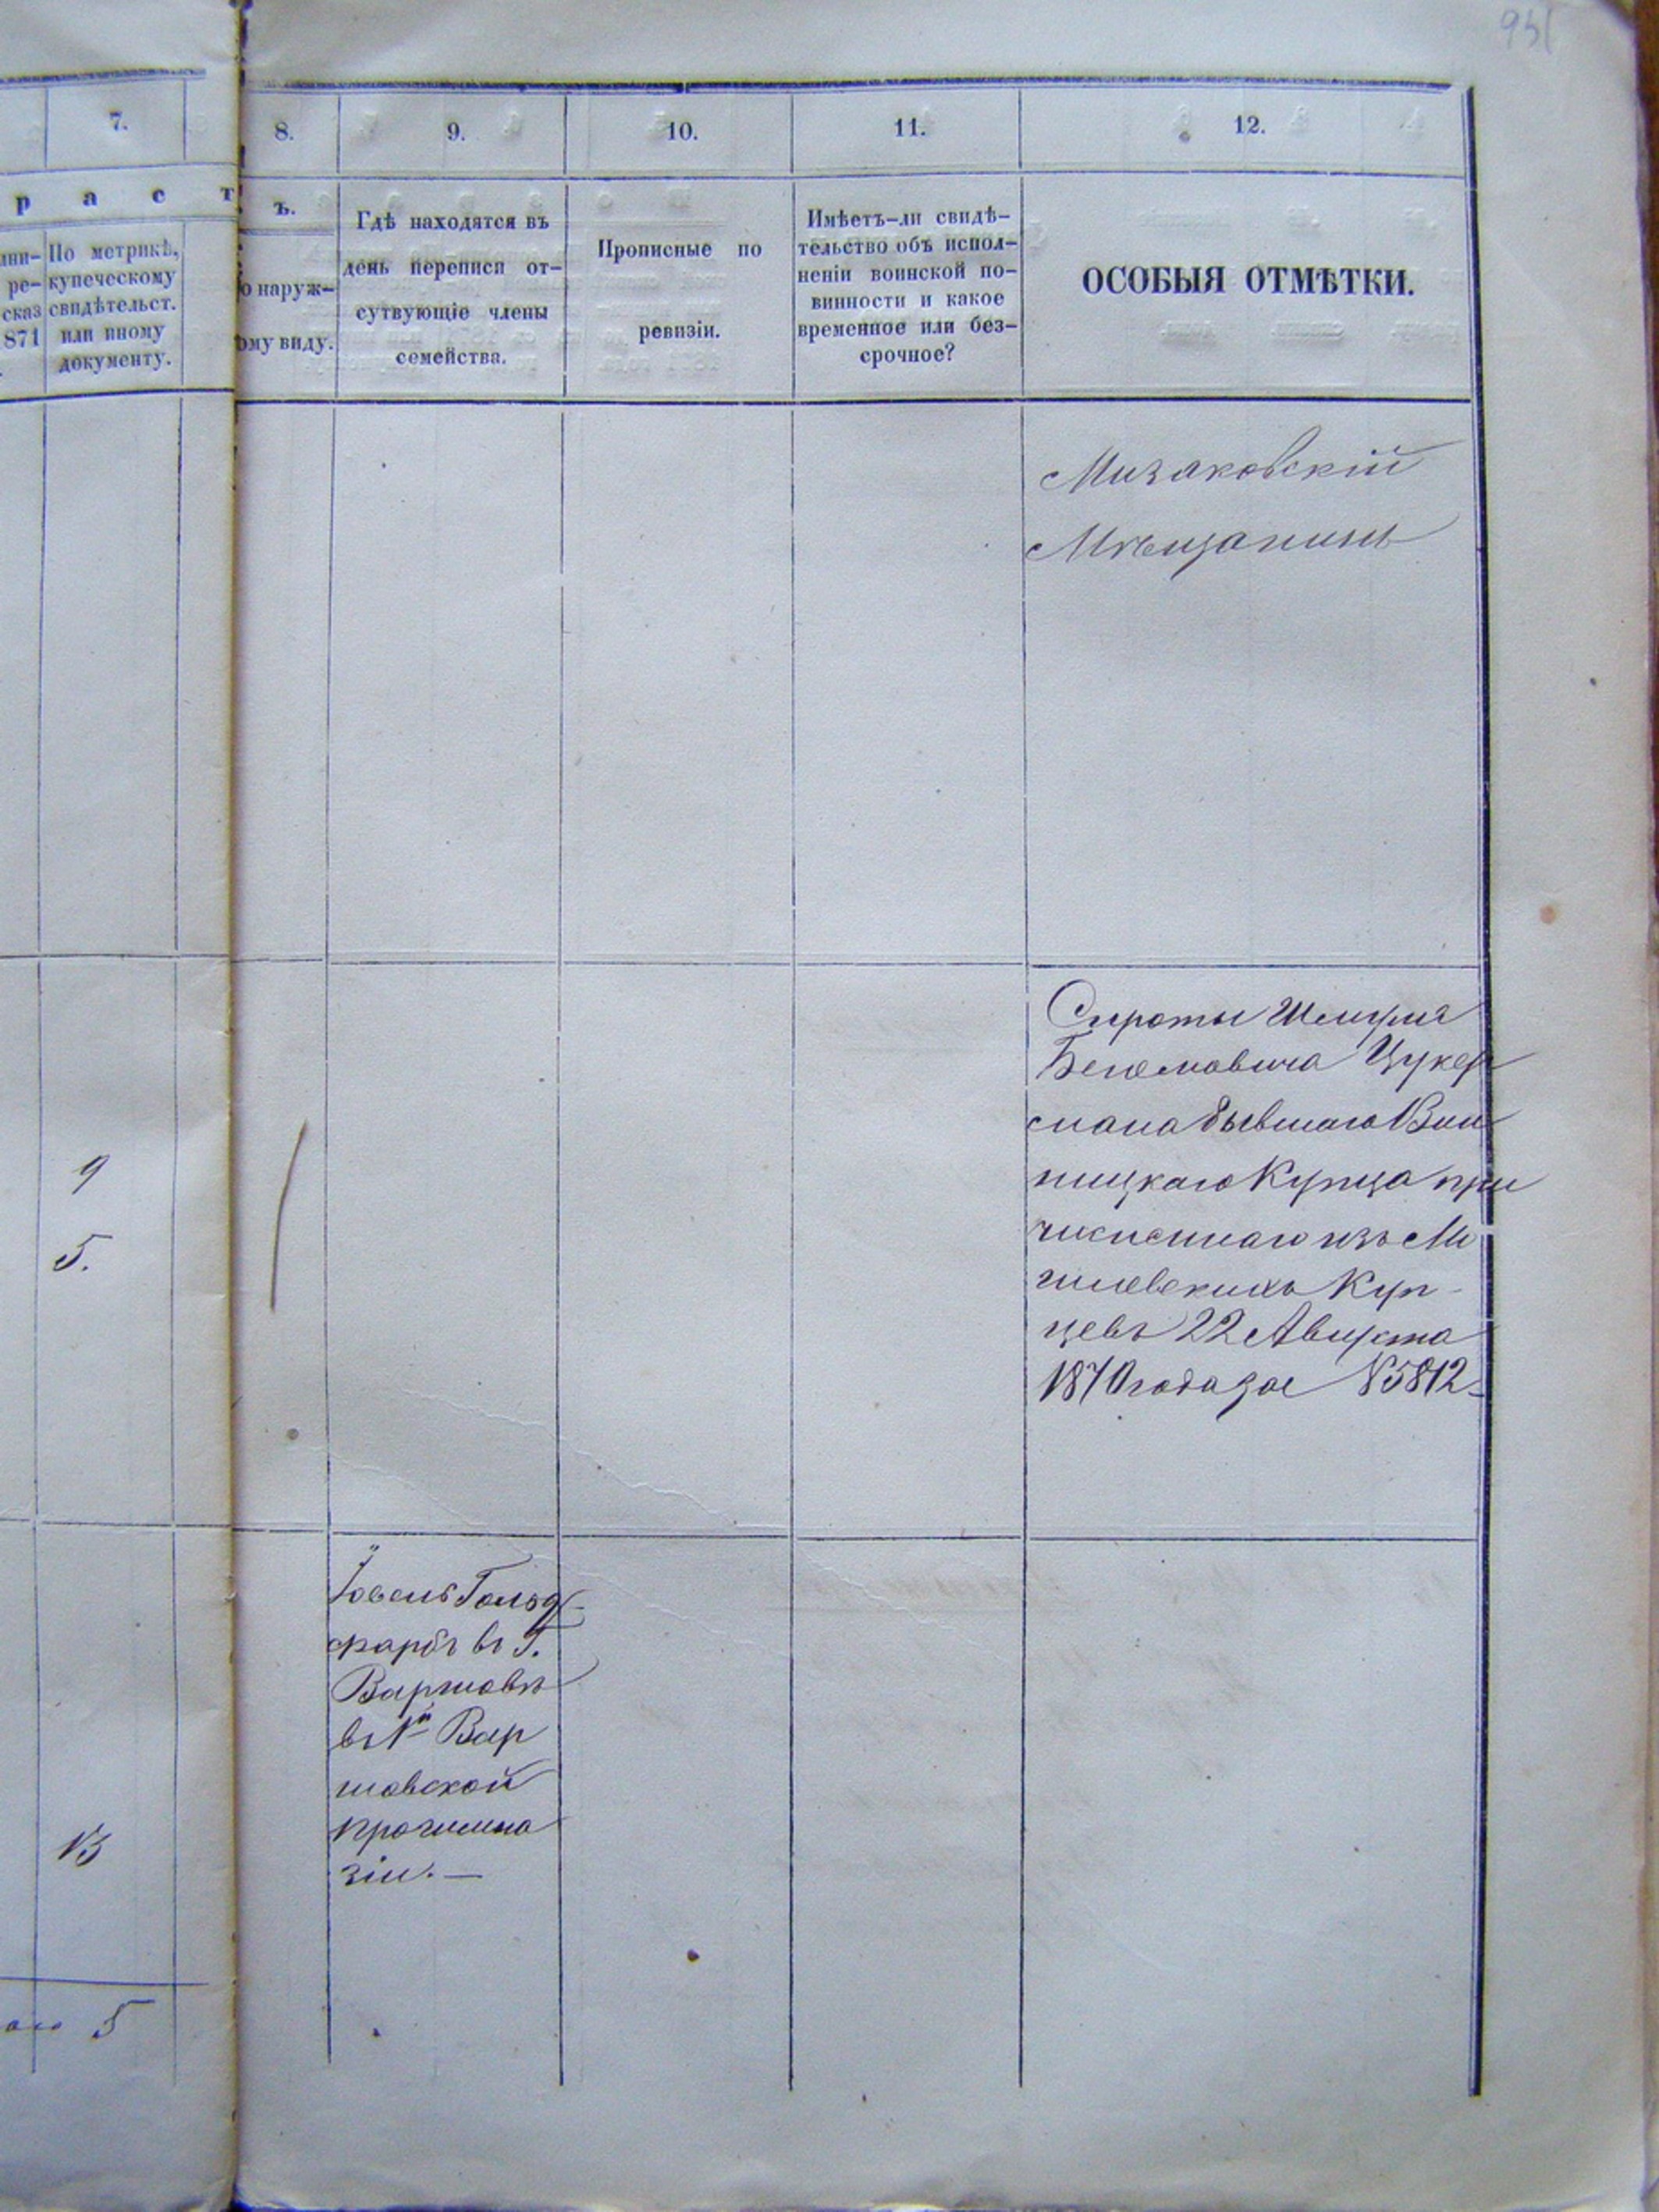 931
7.
8.
9.
10.
11.
12.
р а с т
ъ.
По метрикѣ,
купеческому
свидѣтельст.
или иному
документу.
ре-
сказ
871
о наруж-
ому виду.
Гдѣ находятся въ
день переписи от-
сутвующіе члены
семейства.
Прописные по
ревизіи.
Имѣетъ-ли свидѣ-
тельство объ испол-
неніи воинской по-
винности и какое
временное или без-
срочное?
ОСОБЫЯ ОТМѢТКИ.
Мизяковскій
Мѣщанинъ
9
5.
Сироты
Цукер
мана бывшаго Вин
ницкаго Купца при
численнаго изъ Мо
гилевскихъ Куп-
цевъ 22 Августа
1870 года за № 5812
Іовель Гольд
фарбъ въ Г.
Варшавѣ
въ Вар
шавской
прогимна
зіи.—
13
5